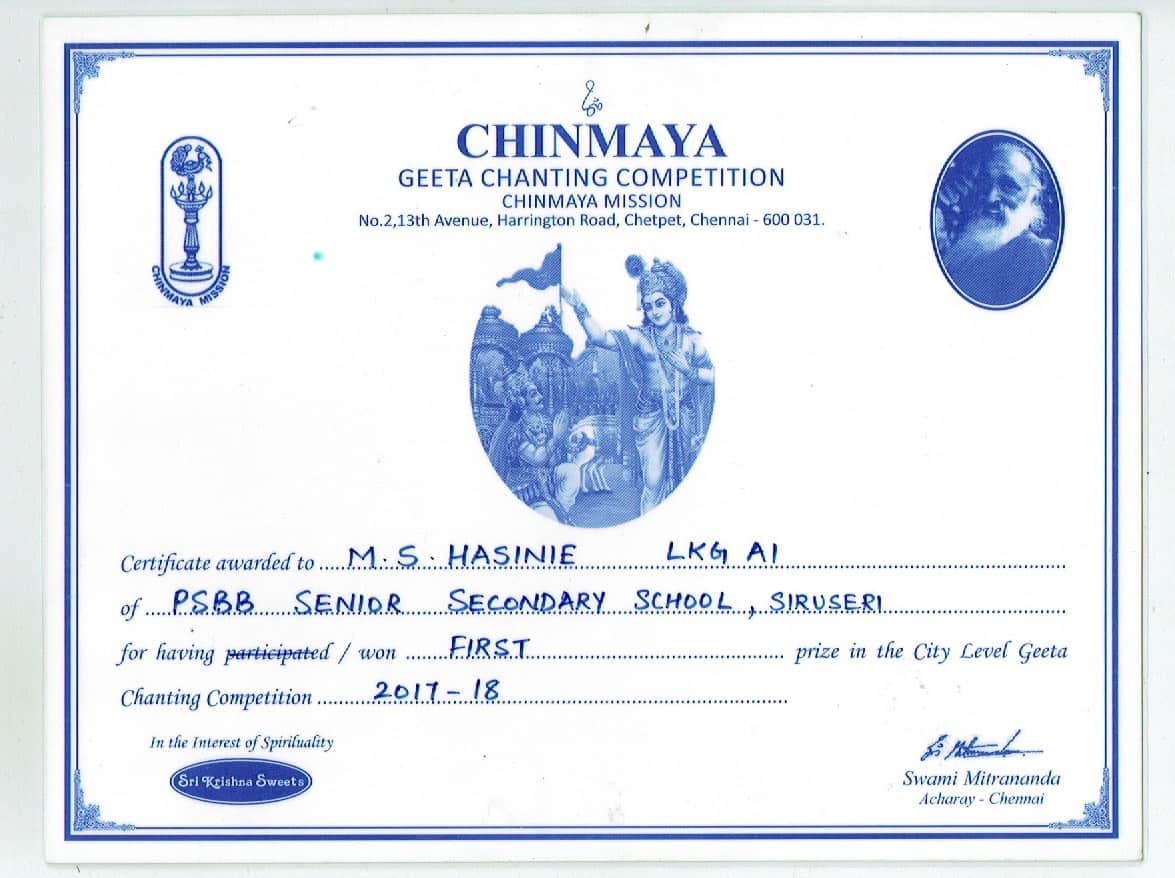 CHINMAYA
GEETA CHANTING COMPETITION
CHINMAYA MISSION
No.2,13th Avenue, Harrington Road, Chetpet, Chennai - 600 031.
CHINMAYA MISSION
Certificate awarded to ..... M. S. HASINIE LKG A1
of ..... PSBB SENIOR SECONDARY SCHOOL, SIRUSERI
for having participated / won ....... FIRST ....... prize in the City Level Geeta
Chanting Competition ....... 2017-18
In the Interest of Spirituality
Sri Krishna Sweets
Swami Mitrananda
Acharay - Chennai